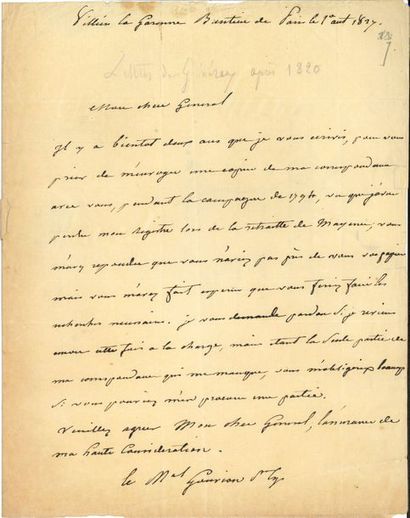 Villiers la Garenne Banlieue de Paris le 1er aout 1827.
Lettres de Généraux après 1820
Mon cher Général
Il y a bientot deux ans que je vous écrivis, pour vous
prier de m'envoyer une copie de ma correspondance
avec vous, pendant la campagne de 1794, vu que j'avais
perdu mon registre lors de la retraitte de Mayence; vous
m'avez repondu que vous n'aviez pas près de vous vos papiers
mais vous m'avez fait esperer que vous feriez faire les
recherches necessaires. je vous demande pardon si je reviens
encore cette fois a la charge, mais etant la seule partie de
ma correspondance qui me manque, vous m'obligeriez beaucoup
si vous pouviez m'en procurer une partie.
Veuillez agreer Mon cher General, l'assurance de
ma haute Consideration.
le Mal Gouvion St Cyr